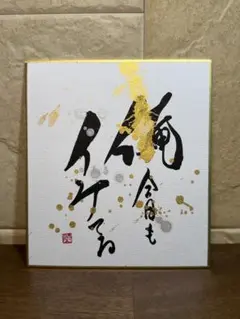 俺
今日も
イケてる